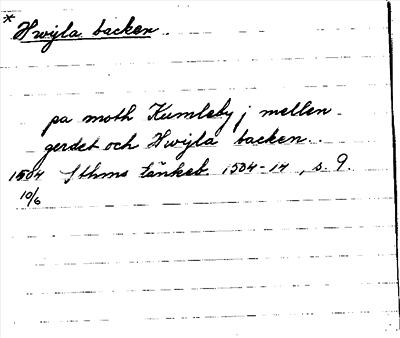 * Hwijla backen.
pa moth Kumleby j mellen
gerdet och Hwijla backen.
1504 Sthms tänkeb. 1504-14, s. 9.
10/6